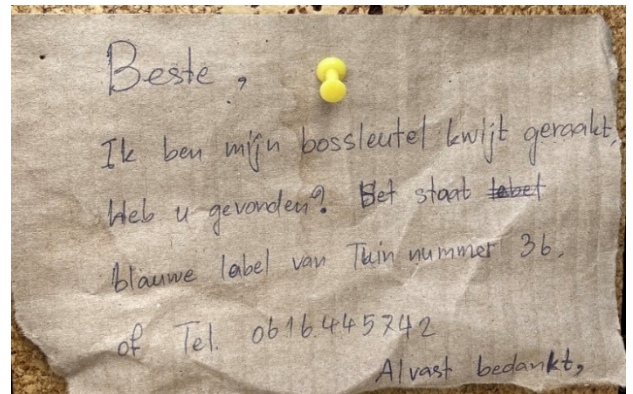 Beste,
Ik ben mijn bossleutel kwijt geraakt,
Heb u gevonden? Het staat label
blauwe label van Tuin nummer 36,
of Tel. 0616.445742
Alvast bedankt,